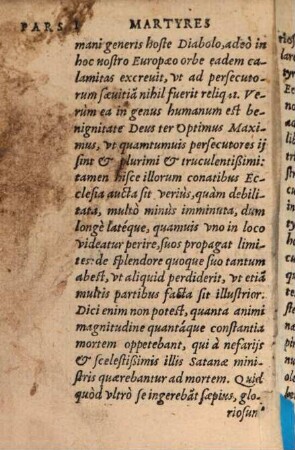 PARS I MARTYRES
mani generis hoste Diabolo, adeò in
hoc nostro Europæo orbe eadem ca-
lamitas excreuit, vt ad persecuto-
rum sæuitiã nihil fuerit reliq
Ve-
rùm ea in genus humanum est be-
nignitate Deus ter Optimus Maxi-
mus, vt quantumuis persecutores ij
sint & plurimi & truculentißimi:
tamen hisce illorum conatibus Ec-
clesia aucta sit veriùs, quàm debili-
tata, multò minùs imminuta, dum
longè latéque, quamuis vno in loco
videatur perire, suos propagat limi-
tes: de splendore quoque suo tantum
abest, vt aliquid perdiderit, vt etiã
multis partibus facta sit illustrior.
Dici enim non potest, quanta animi
magnitudine quantáque constantia
mortem oppetebant, qui à nefarijs
& scelestißimis illis Satanæ mini-
stris quærebantur ad mortem. Quid
quòd vltrò se ingerebãt sæpius, glo-
riosum